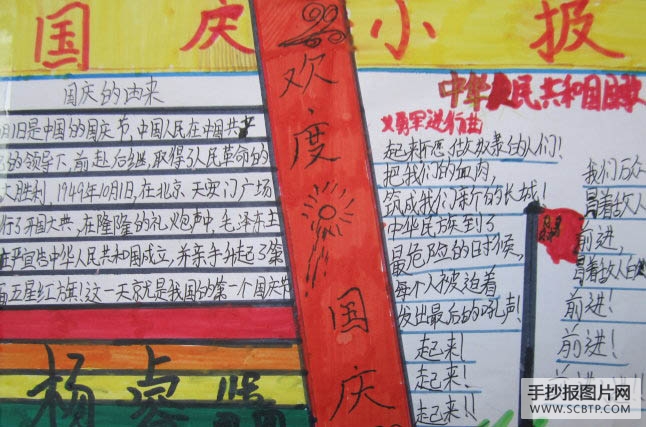 国庆小报
国庆的由来
月1日是中国的国庆节,中国人民在中国共产
的领导下,前赴后继,取得了人民革命的
大胜利,1949年10月1日,在北京天安门广场
行了开国大典,在隆隆的礼炮声中,毛泽东主
庄严宣告中华人民共和国成立,并亲手升起了第
面五星红旗!这一天就是我国的第一个国庆
欢度国庆
中华人民共和国国歌
义勇军进行曲
起来!不愿做奴隶的人们!
把我们的血肉,
筑成我们新的长城!
中华民族到了
最危险的时候,
每个人被迫着
发出最后的吼声!
起来!
起来!
起来!!
我们万众
冒着敌人
前进,
冒着敌人
前进!
前进!
手抄报图片网
WWW.SCBTP.COM